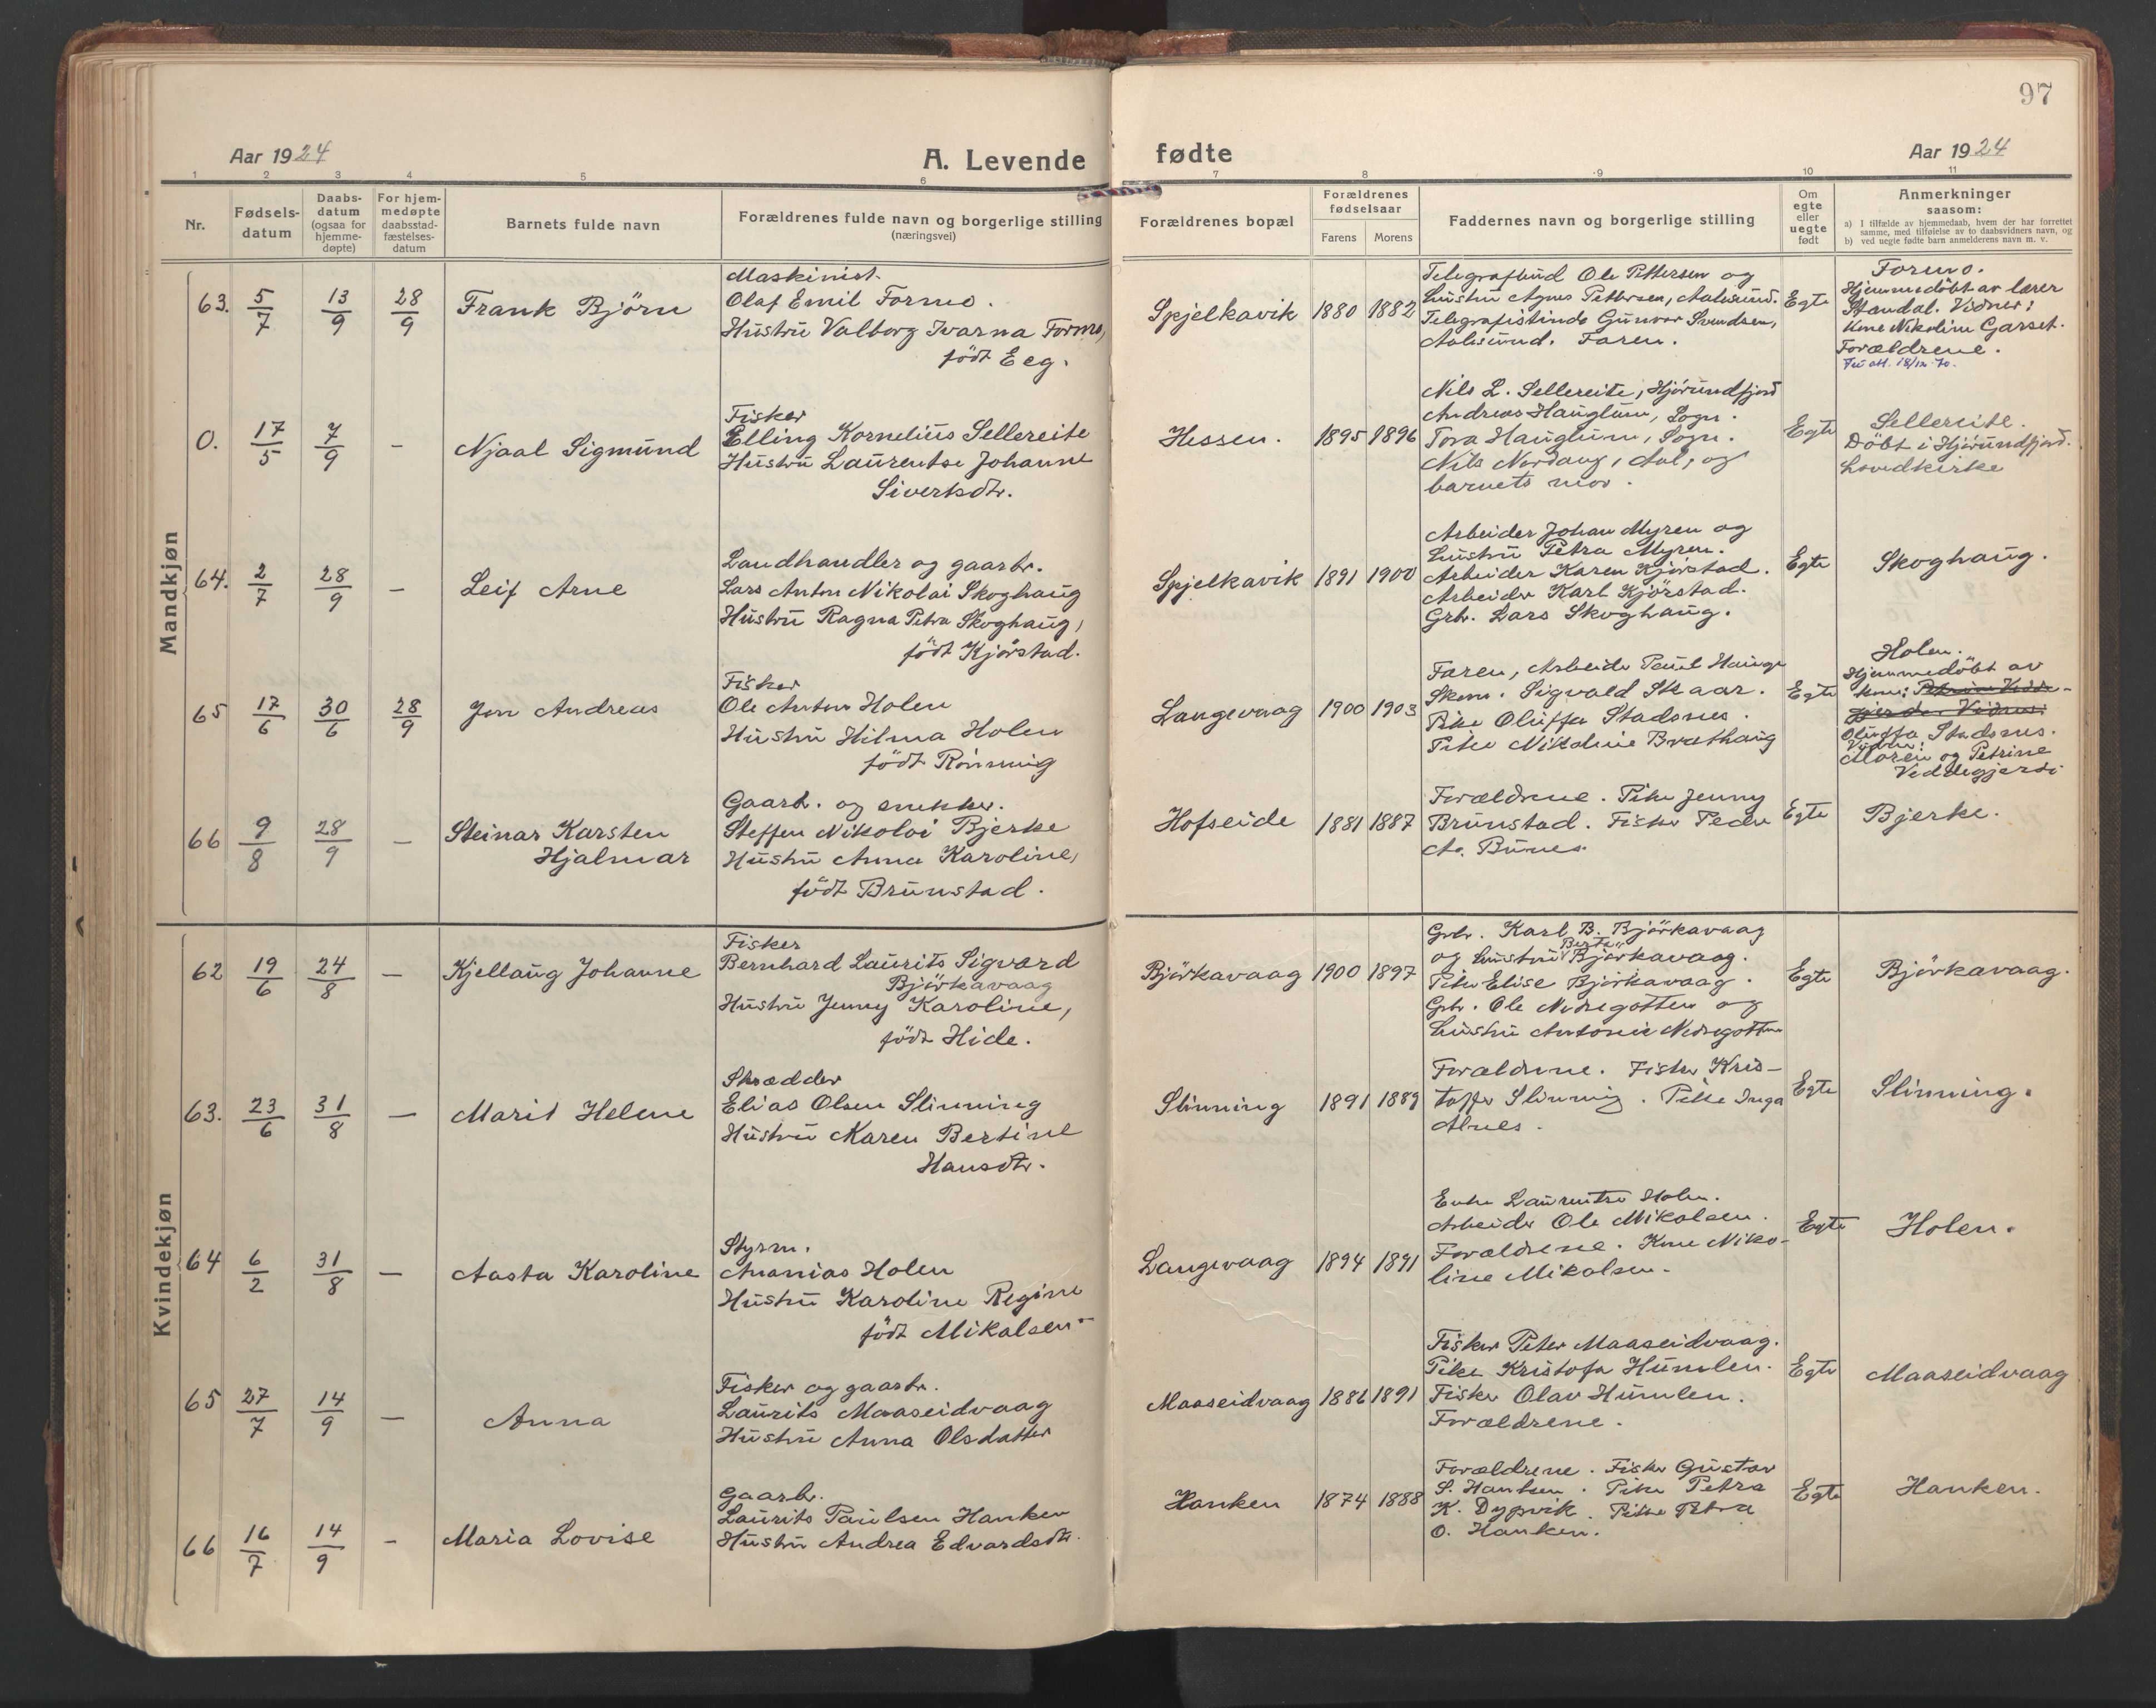 97
Aar 1924
A. Levende fødte
Aar 1924
1 2 3 4 5 6 7 8 9 10 11
Nr.
Fødsels-
datum
Daabs-
datum
(ogsaa for
hjemme-
døpte)
For hjem-
medøpte
daabsstad-
fæstelses-
datum
Barnets fulde navn
Forældrenes fulde navn og borgerlige stilling
(næringsvei)
Forældrenes bopæl
Forældrenes
fødselsaar
Farens
Morens
Faddernes navn og borgerlige stilling
Om
egte
eller
uegte
født
Anmerkninger
saasom:
a) I tilfælde av hjemmedaab, hvem der har forrettet
samme, med tilføielse av to daabsvidners navn, og
b) ved uegte fødte barn anmelderens navn m. v.
Mandkjøn
63. 5/7 13/9 28/9
Frank Björn
Maskinist.
Olaf Emil Formo.
Hustru Valborg Ivarna Formo,
födt Eeg.
Spjelkavik 1880 1882
Telegrafbud Ole Pettersen og
hustru Agnes Pettersen, Aalesund.
Telegrafistinde Gunvor Svendsen,
Aalesund. Faren.
Egte
Formo.
Hjemmedöbt av lærer
Standal. Vidner:
Kone Nikoline Garset.
Forældrene.
18/12 70.
0. 17/5 7/9 -
Njaal Sigmund
Fisker
Elling Kornelius Sellereite
Hustru Laurentse Johanne
Sivertsdtr.
Hessen. 1895 1896
Nils L. Sellereite, Hjörundfjord
Andreas Hauglum, Sogn.
Tora Hauglum, Sogn.
Nils Nordang, Aal, og
barnets mor.
Egte
Sellereite.
Döbt i Hjörundfjord.
hovedkirke
64. 2/7 28/9 -
Leif Arne
Landhandler og gaarbr.
Lars Anton Nikolai Skoghaug
Hustru Ragna Petra Skoghaug,
födt Kjörstad.
Spjelkavik 1891 1900
Arbeider Johan Myren og
hustru Petra Myren.
Arbeider Karen Kjörstad.
Arbeider Karl Kjörstad.
Grbr. Lars Skoghaug.
Egte
Skoghaug.
65 17/6 30/6 28/9
Jon Andreas
Fisker
Ole Anton Holen
Hustru Hilma Holen
födt Rönning
Langevaag 1900 1903
Faren, Arbeider Paul Hauge
Skom. Sigvald Skaar.
Pike Oluffa Stadsnes.
Pike Nikoline Brathaug
Egte
Holen.
Hjemmedöbt av
kone: Petrine Vedde-
gjerde. Vidnes:
Oluffa Stadsnes.
Vidner:
Maren og Petrine
Veddegjerde
66 9/8 28/9 -
Steinar Karsten
Hjalmar
Gaarb. og snekker.
Steffen Nikolai Bjerke
Hustru Anna Karoline,
födt Brunstad.
Hofseide 1881 1887
Forældrene. Pike Jenny
Brunstad. Fisker Peder
A. Bunes.
Egte
Bjerke.
Kvindekjøn
62 19/6 24/8 -
Kjellaug Johanne
Fisker
Bernhard Laurits Sigvard
Björkavaag
Hustru Jenny Karoline,
födt Hide.
Björkavaag 1900 1897
Grbr. Karl B. Björkavaag
og hustru Berte Björkavaag.
Pike Elise Björkavaag.
Grbr. Ole Nedregotten og
hustru Antonie Nedregotten
Egte
Björkavaag.
63. 23/6 31/8 -
Marit Helene
Skrædder
Elias Olsen Slinning
Hustru Karen Bertine
Hansdtr.
Slinning 1891 1889
Forældrene. Fisker Kris-
toffer Slinning. Pike Inga
Alnes.
Egte
Slinning.
64 6/2 31/8 -
Aasta Karoline
Styrm.
Ananias Holen
Hustru Karoline Regine
födt Mikalsen
Langevaag 1894 1891
Enke Laurentse Holen.
Arbeider Ole Mikalsen.
Forældrene. Kone Niko-
line Mikalsen.
Egte
Holen.
65 27/7 14/9 -
Anna
Fisker og gaarbr.
Laurits Maaseidvaag
Hustru Anna Olsdatter
Maaseidvaag 1886 1891
Fisker Peter Maaseidvaag.
Pike Kristofa Humlen.
Fisker Olav Humlen.
Forældrene.
Egte
Maaseidvaag
66 16/7 14/9 -
Maria Lovise
Gaarb.
Laurits Paulsen Hanken
Hustru Andrea Edvardsdtr.
Hanken 1874 1888
Forældrene. Fisker Gustav
S. Hanken. Pike Petra
K. Dypvik. Pike Petra
O. Hanken.
Egte
Hanken.